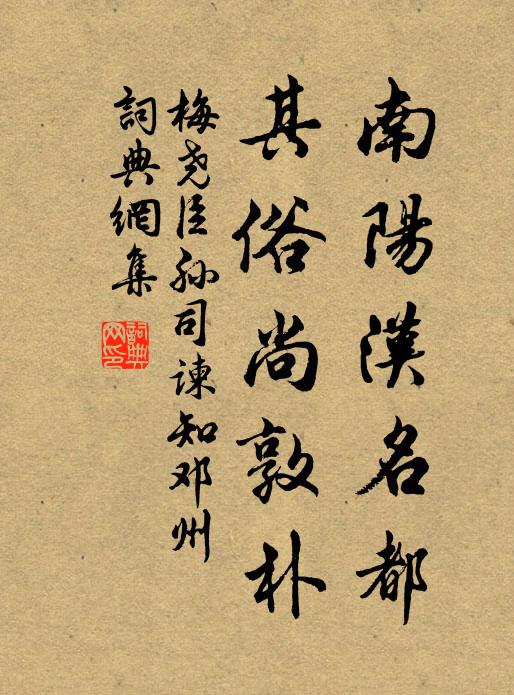 南陽漢名都
其俗尚敦朴
梅尧臣孙司諫知邓州
詞典網集
詞典网印